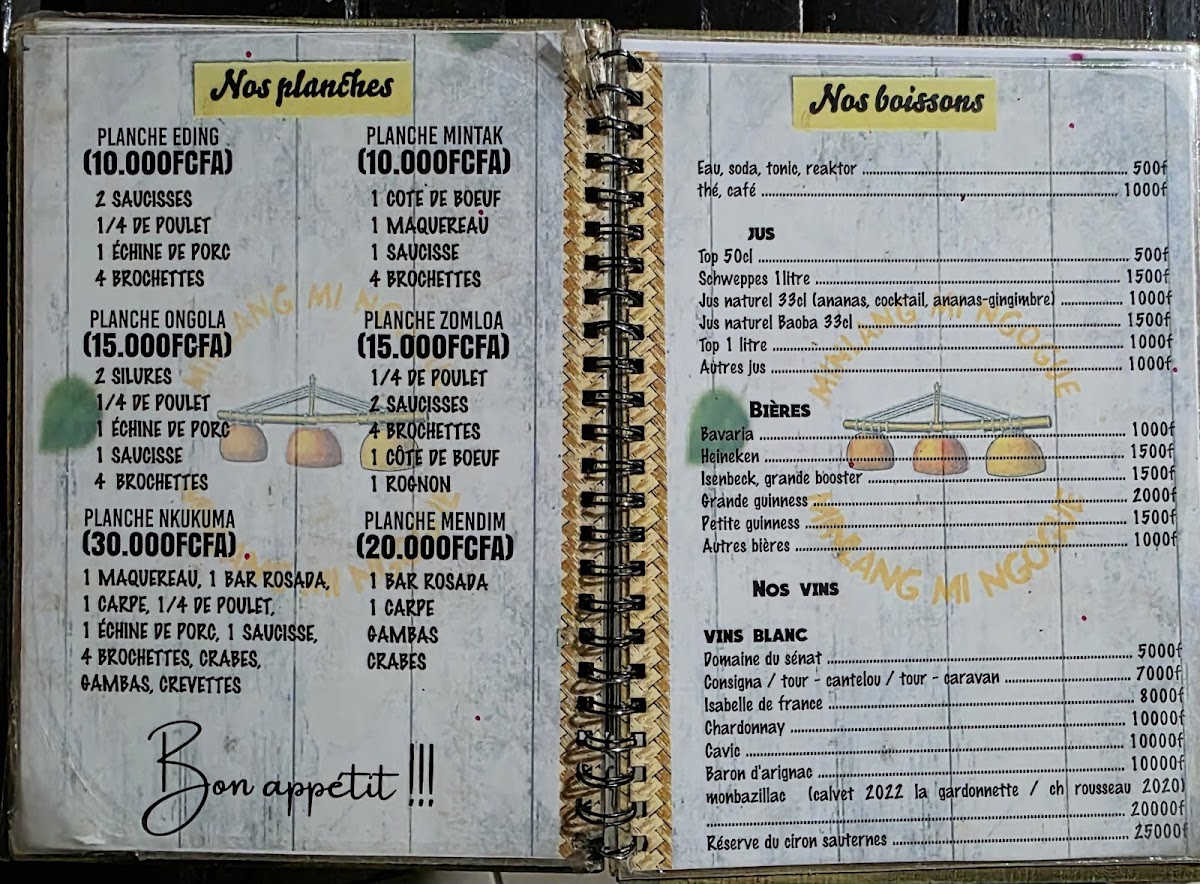 Nos planches
PLANCHE EDING
(10.000FCFA)
2 SAUCISSES
1/4 DE POULET
1 ÉCHINE DE PORC
4 BROCHETTES
PLANCHE MINTAK
(10.000FCFA)
1 COTE DE BOEUF
1 MAQUEREAU
1 SAUCISSE
4 BROCHETTES
PLANCHE ONGOLA
(15.000FCFA)
2 SILURES
1/4 DE POULET
1 ÉCHINE DE PORC
1 SAUCISSE
4 BROCHETTES
PLANCHE ZOMLOA
(15.000FCFA)
1/4 DE POULET
2 SAUCISSES
4 BROCHETTES
1 CÔTE DE BOEUF
1 ROGNON
PLANCHE NKUKUMA
(30.000FCFA)
1 MAQUEREAU, 1 BAR ROSADA,
1 CARPE, 1/4 DE POULET,
1 ÉCHINE DE PORC, 1 SAUCISSE,
4 BROCHETTES, CRABES,
GAMBAS, CREVETTES
PLANCHE MENDIM
(20.000FCFA)
1 BAR ROSADA
1 CARPE
GAMBAS
CRABES
Bon appétit !!!
Nos boissons
Eau, soda, tonic, reaktor 500f
thé, café 1000f
JUS
Top 50cl 500f
Schweppes 1litre 1500f
Jus naturel 33cl (ananas, cocktail, ananas-gingimbre) 1000f
Jus naturel Baoba 33cl 1500f
Top 1 litre 1000f
Autres jus 1000f
BIÈRES
Bavaria 1000f
Heineken 1500f
Isenbeck, grande booster 1500f
Grande guinness 2000f
Petite guinness 1500f
Autres bières 1000f
NOS VINS
VINS BLANC
Domaine du sénat 5000f
Consigna / tour - cantelou / tour - caravan 7000f
Isabelle de france 8000f
Chardonnay 10000f
Cavic 10000f
Baron d'arignac 10000f
monbazillac (calvet 2022 la gardonnette / ch rousseau 2020)
20000f
Réserve du ciron sauternes 25000f
MINLANG MI NGOGUE
MINLANG MI NGOGUE